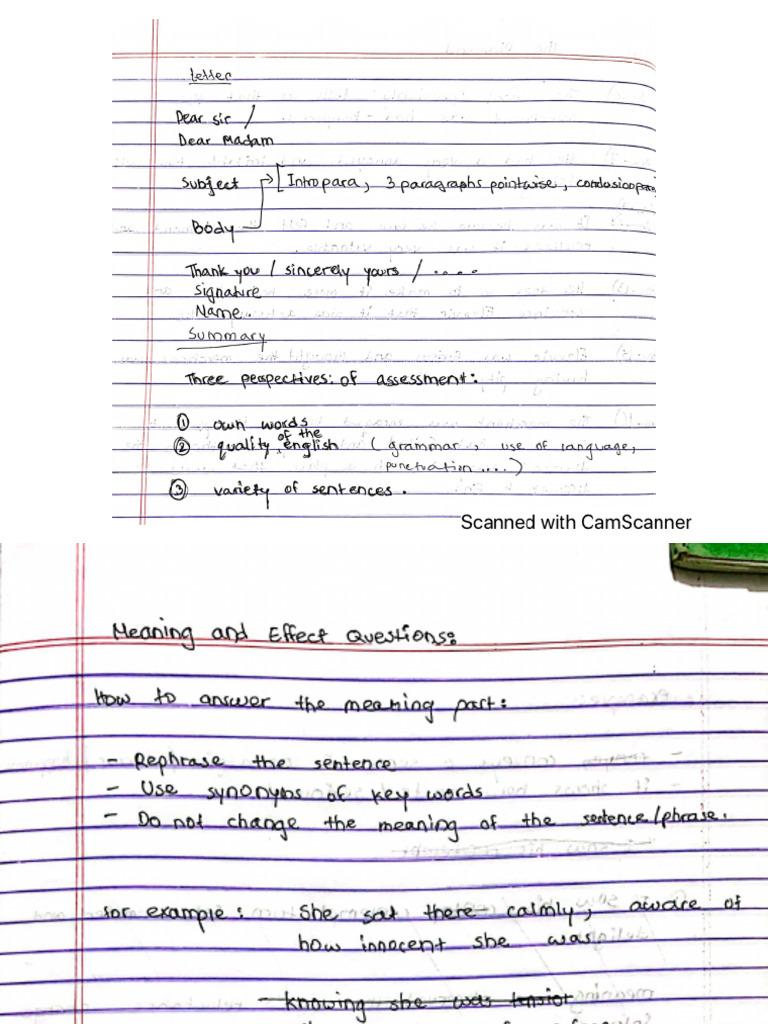 Letter
Dear sir /
Dear Madam
Subject [Intropara, 3 paragraphs pointwise,
Body
Thank you / sincerely yours / ....
Signature
Name
Summary
Three perspectives: of assessment:
① own words
② quality of the english (grammar, use of language,
punctuation....)
③ variety of sentences.
Scanned with CamScanner
Meaning and Effect Questions:
How to answer the meaning part:
- Rephrase the sentence
- Use synonyms of key words
- Do not change the meaning of the sentence/phrase.
for example: She sat there calmly, aware of
how innocent she was
- knowing she was